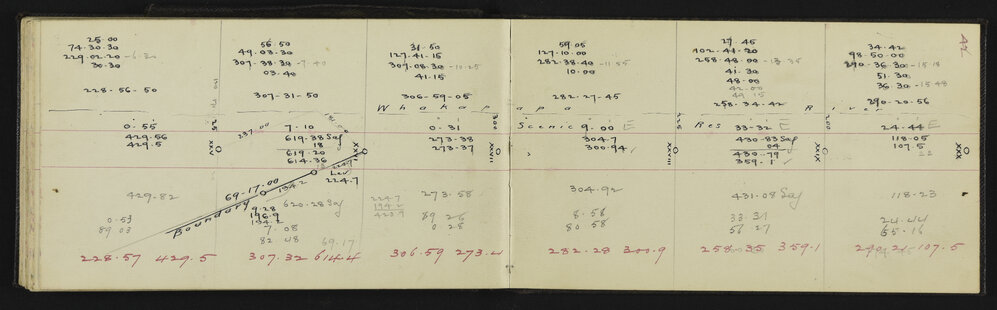 42
25.00
74.30.30
229.02.20 -6.30
30.30
228.56.50
0.55
429.56
429.5
429.82
0.53
89 03
228.57 429.5
56.50
49.03.30
307.38.30 -7.40
03.40
307-31-50
237.00
7.10
619.38 Sag
18
619.20
614.36
Lev
224.7
69-17.00
194.2
Boundary
9.28
196.9
194.2
620.28 Sag
7.08
82 48
69.17
307.32 614.4
31.50
127.41-15
307.08.30 -10.25
41.15
306-59-05
Whakapapa
0.31
273.38
273.37
XXVII
300
224.7
194.2
273.58
89 26
0.28
306.59 273.4
59.05
127.10.00
282.38.40 -11.55
10.00
282-27-45
Scenic 9.00 E
304.7
300.94
304.92
8.58
80 58
282.28 300.9
27.45
102.41.20
258.48.00 -13.35
41.30
48.00
42.00
49.15
258.34.42
River
Res 33-32 E
430.83 Sag
04
430.79
359.1
XXVIII
225
431.08 Sag
33.31
56 27
258.35 359.1
34.42
98.50.00
290.36.30 -15.18
51.30
36.30 -15.48
290.20.56
24.44 E
118.05
107.5
XXIX
200
XXX
118.23
24.44
65.16
290.21 107.5